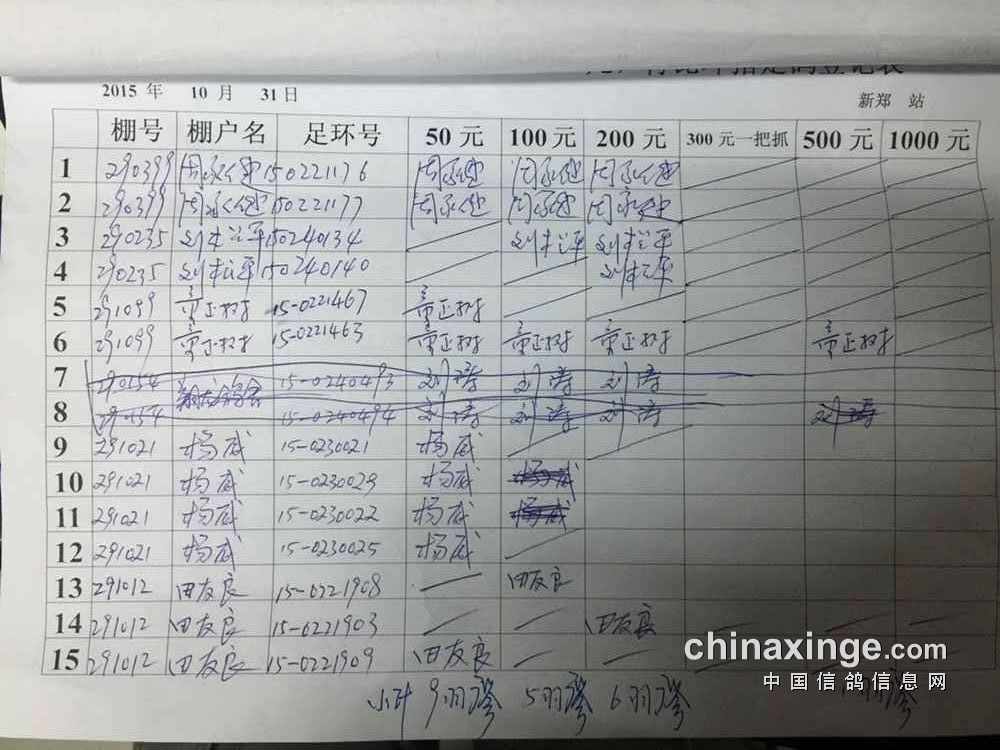 2015 年 10 月 31 日
新郑 站
棚号 棚户名 足环号 50 元 100 元 200 元 300 元一把抓 500 元 1000 元
1 290399 周永健 150221176 周永健 周永健 周永健
2 290399 周永健 150221177 周永健 周永健 周永健
3 290235 150240134
4 290235 150240140
5 291099 童正树 15-0221467 童正树
6 291099 童正树 15-0221463 童正树 童正树 童正树 童正树
7 290154 15-0240493 刘涛 刘涛 刘涛
8 290154 15-0240494 刘涛 刘涛 刘涛 刘涛
9 291021 杨威 15-0230021 杨威
10 291021 杨威 15-0230029 杨威 杨威
11 291021 杨威 15-0230022 杨威 杨威
12 291021 杨威 15-0230025 杨威
13 291012 田友良 15-0221908 田友良
14 291012 田友良 15-0221903 田友良
15 291012 田友良 15-0221909 田友良
小计 9羽 5羽 6羽
chinaxinge.com
中国信鸽信息网